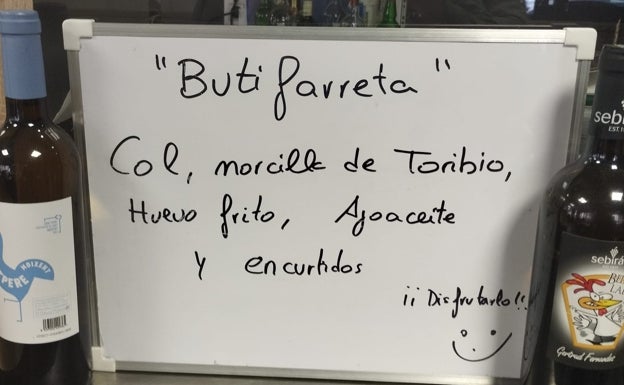 "Butifarreta"
Col, morcilla de Toribio,
Huevo frito, Ajoaceite
y encurtidos
¡¡Disfrutarlo!!
PERE
MOIXENT
sebi
EST.
sebirá
Gertrud Fernandez